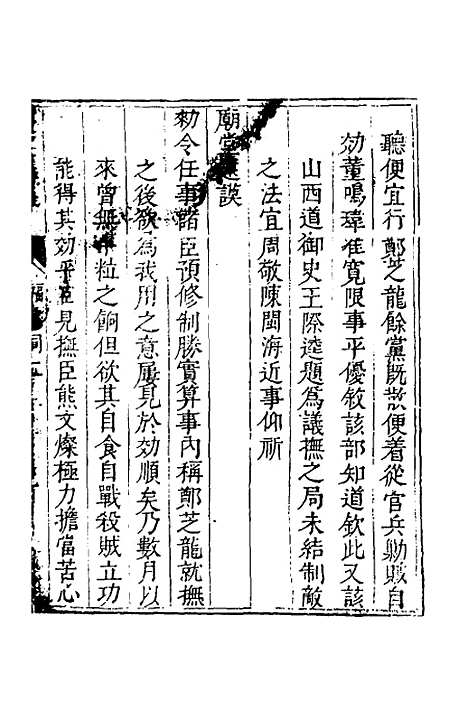 聽便宜行鄭芝龍餘黨既散便着從官兵勦賊自
効董鳴瑋准寬限事平優敘該部知道欽此又該
山西道御史王際逵題為議撫之局未結制敵
之法宜周敬陳閩海近事仰祈
廟堂議
勑令任事諸臣預修制勝實算事內稱鄭芝龍就撫
之後欲為我用之意屢見於効順矣乃數月以
來曾無粒之餉但欲其自食自戰殺賊立功
能得其効乎臣見撫臣熊文燦極力擔當苦心